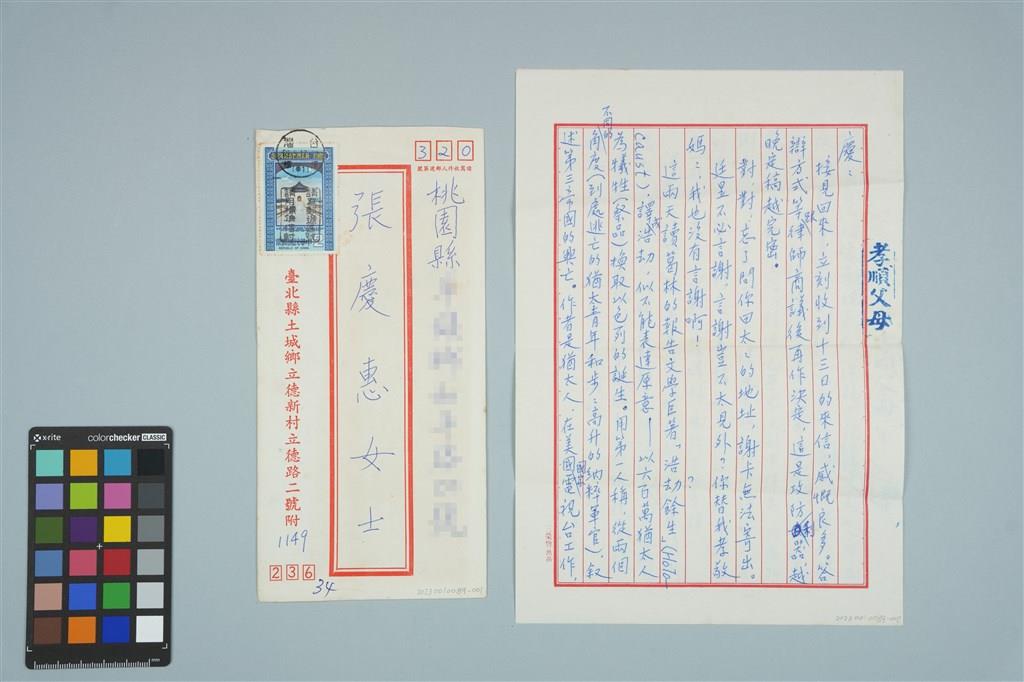 320
桃園縣
張慶惠女士
臺北縣土城鄉立德新村立德路二號附
1149
236
34
2023.001.0089-001
孝順父母
慶：
接見回來，立刻收到十三日的來信，感慨良多。答
辯方式等與律師商議後再作決定，這是攻防利器，越
晚定稿越完密。
對，對，忘了問你田太太的地址，謝卡無法寄出。
廷昱不必言謝，言謝豈不太見外？你替我孝敬
媽媽，我也沒有言謝啊！
這兩天讀葛林的報告文學巨著「浩劫餘生」(Holo-
caust)，譯成浩劫，似不能表達原意——以六百萬猶太人
為犧牲(祭品)換取以色列的誕生。用第一人稱，從兩個
不同的角度(到處逃亡的猶太青年和步步高升的納粹軍官)，敘
述第三帝國的興亡。作者是猶太人，在美國國家電視台工作，
2023.001.0089-001
x-rite
colorchecker CLASSIC
mm